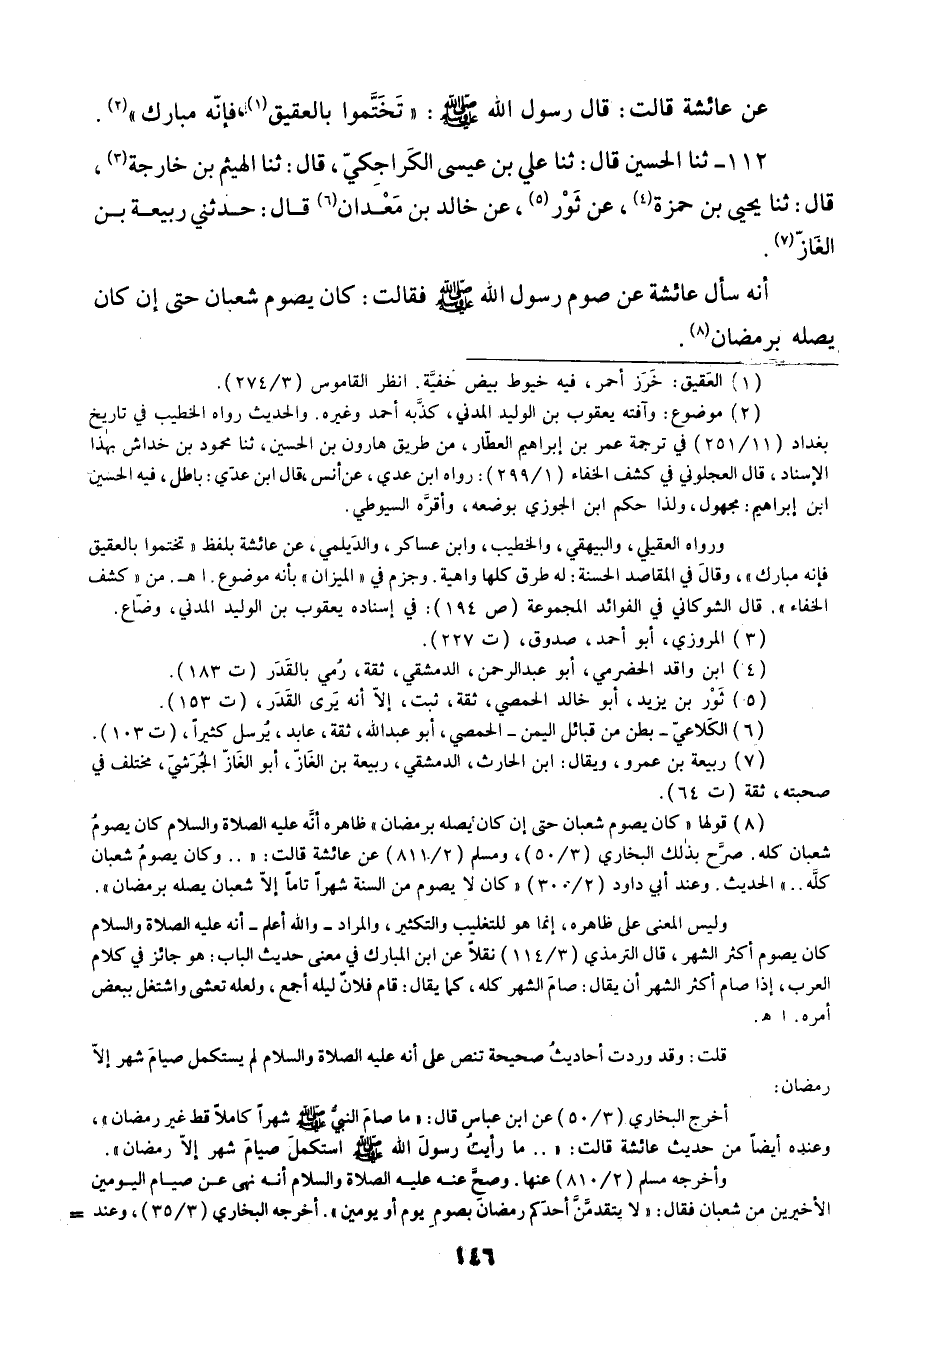 عن عائشة قالت: قال رسول الله ﷺ: « تَخَتَّموا بالعقيق(١)، فإنّه مبارك »(٢).
١١٢ـ ثنا الحسين قال: ثنا علي بن عيسى الكَراجكيّ، قال: ثنا الهيثم بن خارجة(٣)،
قال: ثنا يحيى بن حمزة(٤)، عن ثَوْر(٥)، عن خالد بن مَعْدان(٦) قال: حدثني ربيعة بن
الغَازّ(٧).
أنه سأل عائشة عن صوم رسول الله ﷺ فقالت: كان يصوم شعبان حتى إن كان
يصله برمضان(٨).
(١) العَقيق: خَرَز أحمر، فيه خيوط بيض خَفيَّة. انظر القاموس (٢٧٤/٣).
(٢) موضوع: وآفته يعقوب بن الوليد المدني، كذَّبه أحمد وغيره. والحديث رواه الخطيب في تاريخ
بغداد (٢٥١/١١) في ترجمة عمر بن إبراهيم العطّار، من طريق هارون بن الحسين، ثنا محمود بن خداش بهذا
الإسناد، قال العجلوني في كشف الخفاء (٢٩٩/١): رواه ابن عدي، عن أنس، قال ابن عديّ: باطل، فيه الحسين
ابن إبراهيم: مجهول، ولذا حكم ابن الجوزي بوضعه، وأقرَّه السيوطي.
ورواه العقيلي، والبيهقي، والخطيب، وابن عساكر، والدَّيلمي، عن عائشة بلفظ « تختموا بالعقيق
فإنه مبارك »، وقالَ في المقاصد الحسنة: له طرق كلها واهية. وجزم في « الميزان » بأنه موضوع. ا هـ. من « كشف
الخفاء ». قال الشوكاني في الفوائد المجموعة (ص ١٩٤): في إسناده يعقوب بن الوليد المدني، وضّاع.
(٣) المروزي، أبو أحمد، صدوق، (ت ٢٢٧).
(٤) ابن واقد الحضرمي، أبو عبدالرحمن، الدمشقي، ثقة، رُمي بالقَدَر (ت ١٨٣).
(٥) ثَوْر بن يزيد، أبو خالد الحمصي، ثقة، ثبت، إلاّ أنه يَرى القَدَر، (ت ١٥٣).
(٦) الكَلاعيّ ـ بطن من قبائل اليمن ـ الحمصي، أبو عبدالله، ثقة، عابد، يُرسل كثيراً، (ت ١٠٣).
(٧) ربيعة بن عمرو، ويقال: ابن الحارث، الدمشقي، ربيعة بن الغَازّ، أبو الغَازّ الجُرَشيّ، مختلف في
صحبته، ثقة (ت ٦٤).
(٨) قولها « كان يصوم شعبان حتى إن كان يَصله برمضان » ظاهره أنَّه عليه الصلاة والسلام كان يصومُ
شعبان كله. صرَّح بذلك البخاري (٥٠/٣)، ومسلم (٨١١/٢) عن عائشة قالت: « .. وكان يصومُ شعبان
كلَّه.. » الحديث. وعند أبي داود (٣٠٠/٢) « كان لا يصوم من السنة شهراً تاماً إلاّ شعبان يصله برمضان ».
وليس المعنى على ظاهره، إنما هو للتغليب والتكثير، والمراد ـ والله أعلم ـ أنه عليه الصلاة والسلام
كان يصوم أكثر الشهر، قال الترمذي (١١٤/٣) نقلاً عن ابن المبارك في معنى حديث الباب: هو جائز في كلام
العرب، إذا صام أكثر الشهر أن يقال: صامَ الشهر كله، كما يقال: قام فلانٌ ليله أجمع، ولعله تعشى واشتغل ببعض
أمره. ا هـ.
قلت: وقد وردت أحاديثُ صحيحة تنص على أنه عليه الصلاة والسلام لم يستكمل صيامَ شهر إلاّ
رمضان:
أخرج البخاري (٥٠/٣) عن ابن عباس قال: « ما صامَ النبيُّ ﷺ شهراً كاملاً قط غير رمضان »،
وعنده أيضاً من حديث عائشة قالت: « .. ما رأيتُ رسولَ الله ﷺ استكملَ صيامَ شهر إلاّ رمضان ».
وأخرجه مسلم (٨١٠/٢) عنها. وصحَّ عنه عليه الصلاة والسلام أنه نهى عن صيام اليومين
الأخيرين من شعبان فقال: « لا يتقدمَّنَّ أحدكم رمضانَ بصومِ يوم أو يومين ». أخرجه البخاري (٣٥/٣)، وعند =
١٤٦